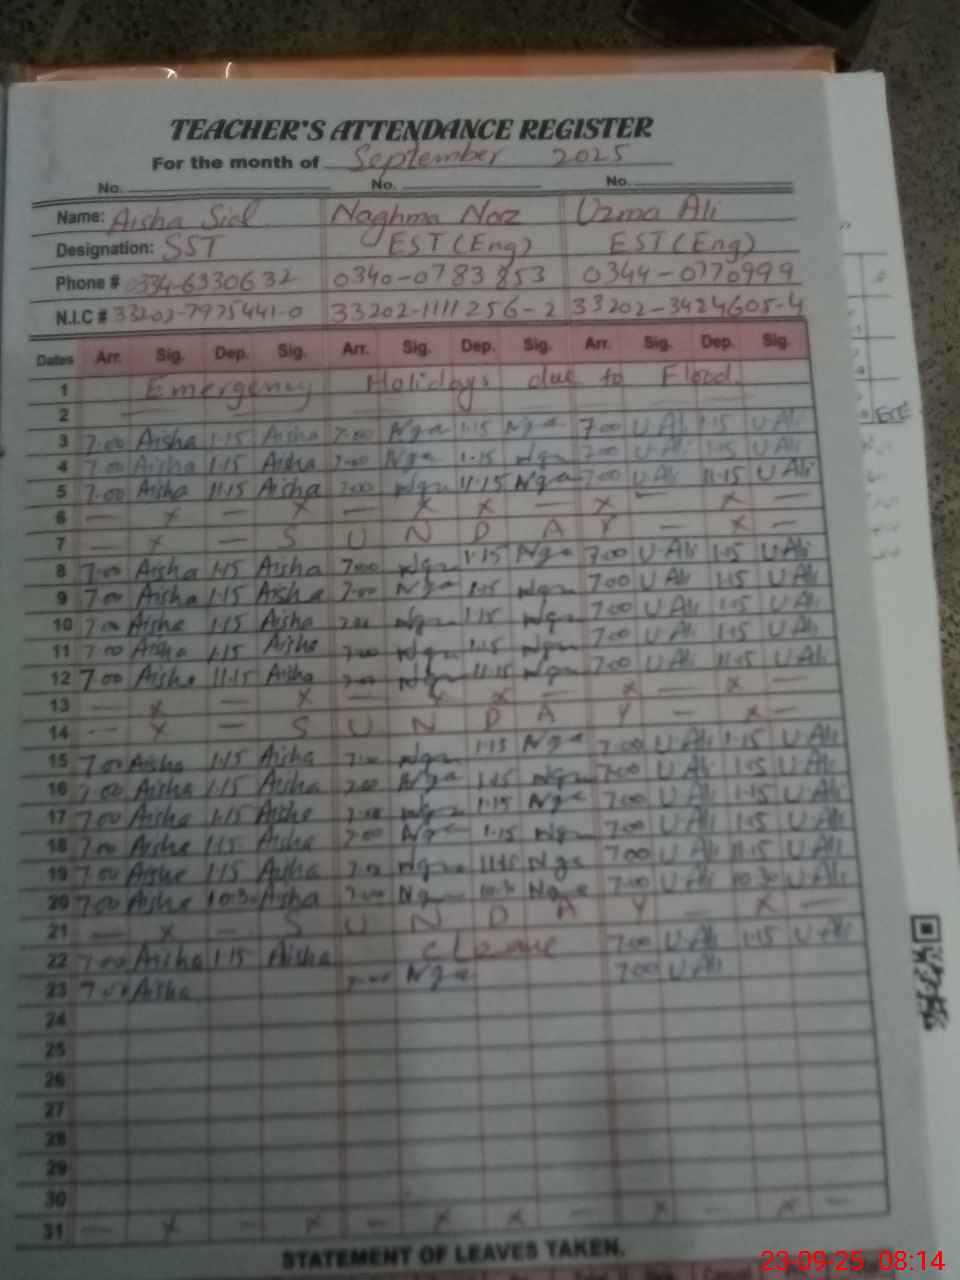 TEACHER'S ATTENDANCE REGISTER
For the month of September 2025
No. No. No.
Name: Aisha Sial Naghma Naz Uzma Ali
Designation: SST EST (Eng) EST (Eng)
Phone # 0334-6330632 0340-0783853 0344-0770999
N.I.C # 33202-7975441-0 33202-1111256-2 33202-3424605-4
Dates Arr. Sig. Dep. Sig. Arr. Sig. Dep. Sig. Arr. Sig. Dep. Sig.
1 Emergency Holidays due to Flood
2
3 7.00 Aisha 1.15 Aisha 7.00 Nga 1.15 Nga 7.00 U Ali 1.15 U Ali
4 7.00 Aisha 1.15 Aisha 7.00 Nga 1.15 Nga 7.00 U Ali 1.15 U Ali
5 7.00 Aisha 11.15 Aisha 7.00 Nga 11.15 Nga 7.00 U Ali 11.15 U Ali
6 — x — x — x x — x — x —
7 — x — S U N D A Y — x —
8 7.00 Aisha 1.15 Aisha 7.00 Nga 1.15 Nga 7.00 U Ali 1.15 U Ali
9 7.00 Aisha 1.15 Aisha 7.00 Nga 1.15 Nga 7.00 U Ali 1.15 U Ali
10 7.00 Aisha 1.15 Aisha 7.00 Nga 1.15 Nga 7.00 U Ali 1.15 U Ali
11 7.00 Aisha 1.15 Aisha 7.00 Nga 1.15 Nga 7.00 U Ali 1.15 U Ali
12 7.00 Aisha 11.15 Aisha 7.00 Nga 11.15 Nga 7.00 U Ali 11.15 U Ali
13 — x — x — x x — x — x —
14 — x — S U N D A Y — x —
15 7.00 Aisha 1.15 Aisha 7.00 Nga 1.15 Nga 7.00 U Ali 1.15 U Ali
16 7.00 Aisha 1.15 Aisha 7.00 Nga 1.15 Nga 7.00 U Ali 1.15 U Ali
17 7.00 Aisha 1.15 Aisha 7.00 Nga 1.15 Nga 7.00 U Ali 1.15 U Ali
18 7.00 Aisha 1.15 Aisha 7.00 Nga 1.15 Nga 7.00 U Ali 1.15 U Ali
19 7.00 Aisha 1.15 Aisha 7.00 Nga 11.15 Nga 7.00 U Ali 11.15 U Ali
20 7.00 Aisha 10.30 Aisha 7.00 Nga 10.30 Nga 7.00 U Ali 10.30 U Ali
21 — x — S U N D A Y — x —
22 7.00 Aisha 1.15 Aisha C Leave 7.00 U Ali 1.15 U Ali
23 7.00 Aisha 7.00 Nga 7.00 U Ali
24
25
26
27
28
29
30
31 — x — x — x x — x — x —
STATEMENT OF LEAVES TAKEN.
23-09-25 08:14